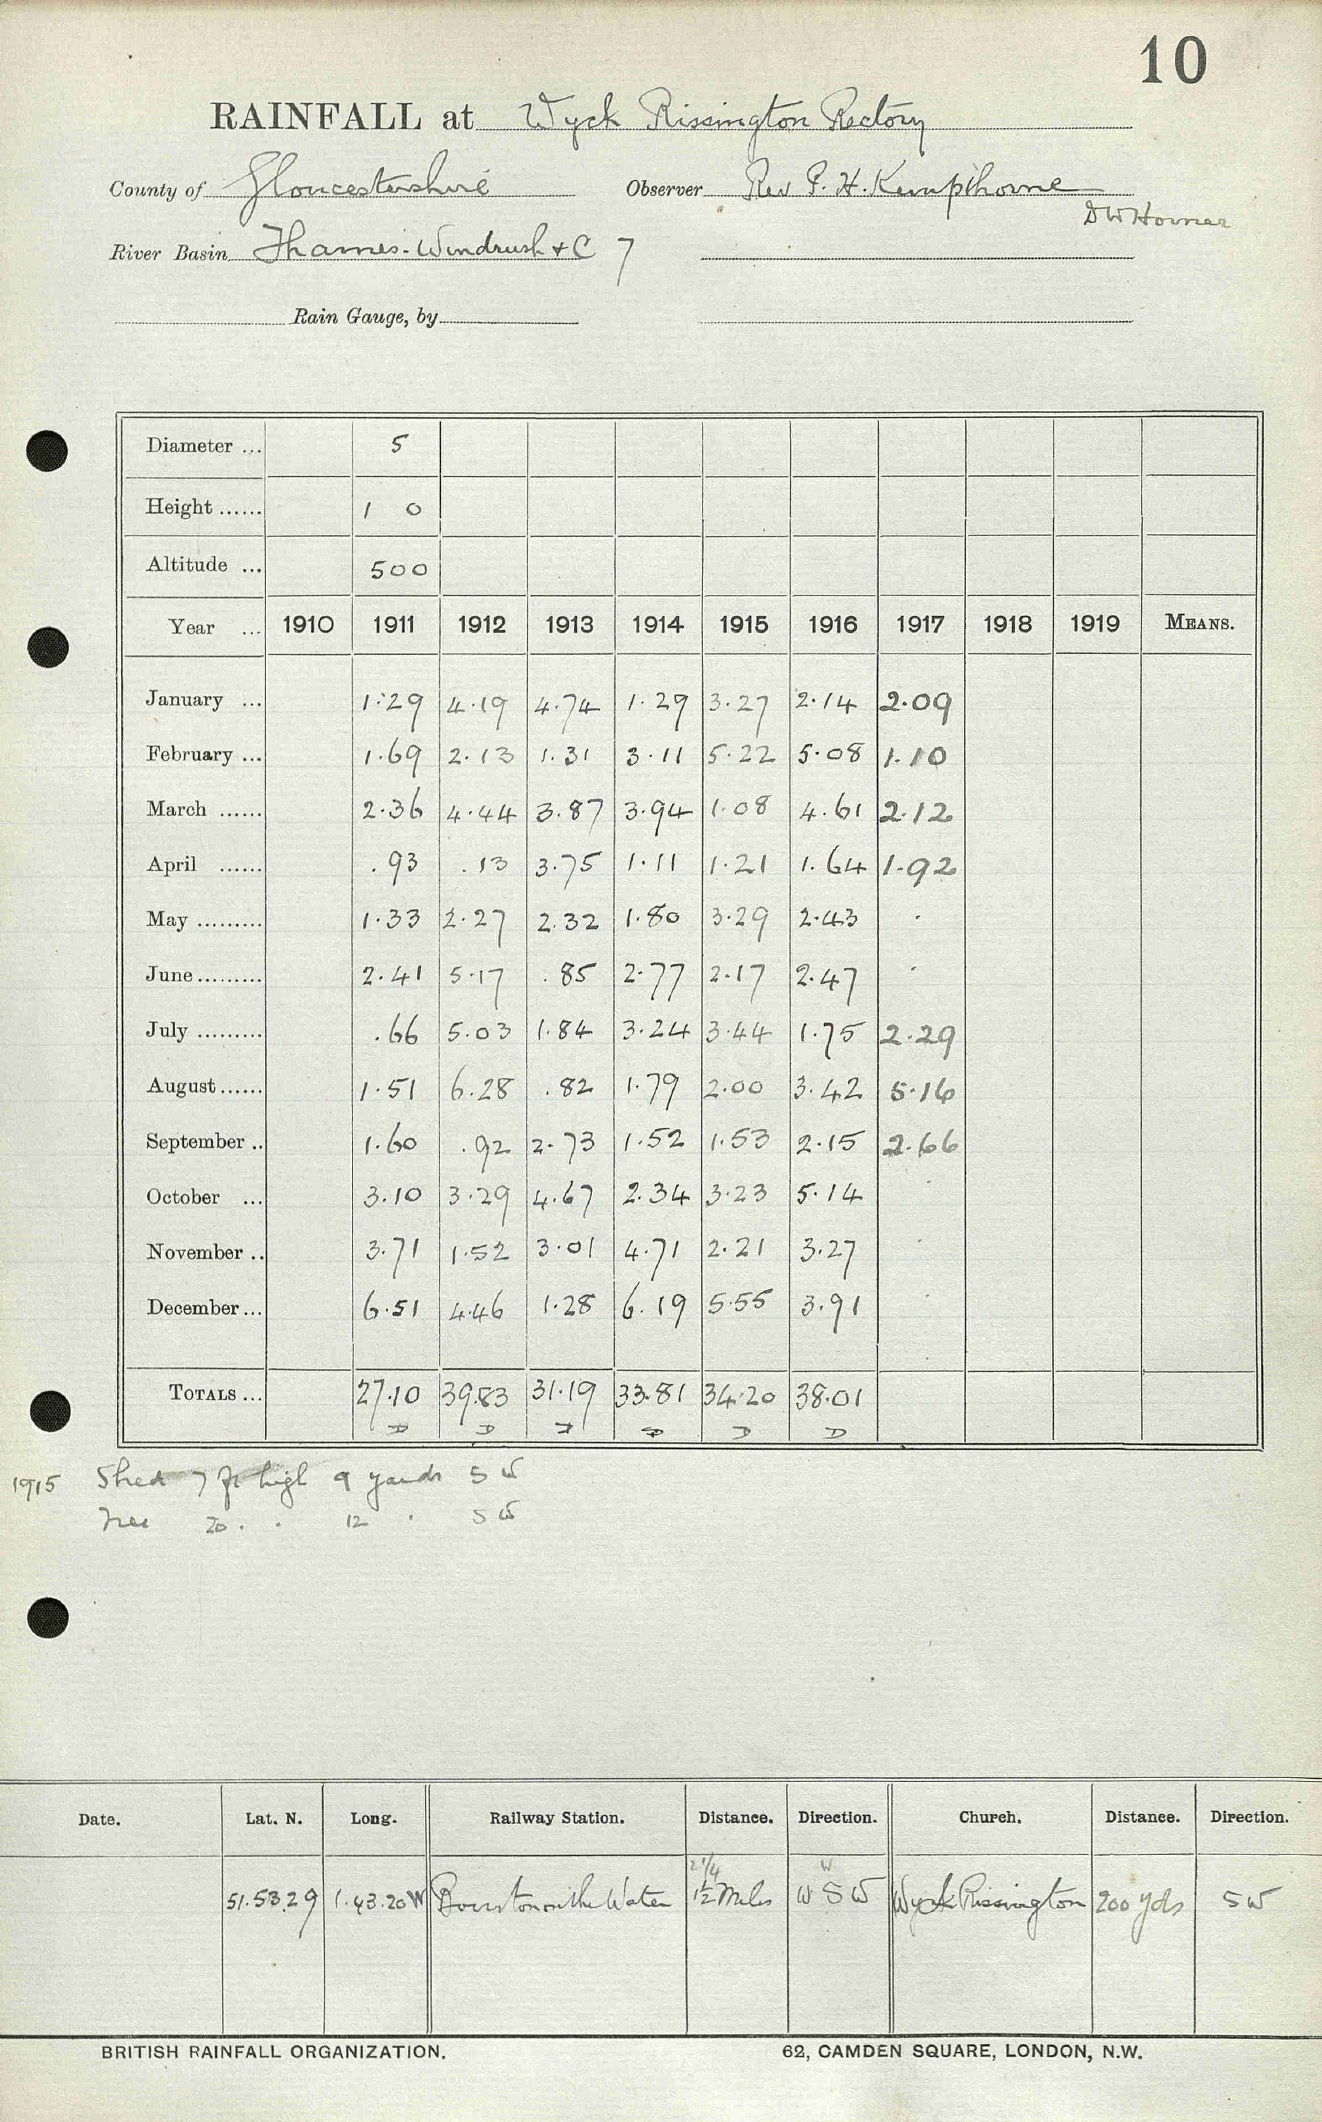 10
RAINFALL at Wyck Rissington Rectory
County of Gloucestershire Observer Rev P. H. Kempthorne
D W Horner
River Basin Thames-Windrush & C 7
Rain Gauge, by
Diameter ... 5
Height ...... 1 0
Altitude ... 500
Year ... 1910 1911 1912 1913 1914 1915 1916 1917 1918 1919 MEANS.
January ... 1.29 4.19 4.74 1.29 3.27 2.14 2.09
February ... 1.69 2.13 1.31 3.11 5.22 5.08 1.10
March ...... 2.36 4.44 3.87 3.94 1.08 4.61 2.12
April ...... .93 .13 3.75 1.11 1.21 1.64 1.92
May ......... 1.33 2.27 2.32 1.80 3.29 2.43 .
June ......... 2.41 5.17 .85 2.77 2.17 2.47 .
July ......... .66 5.03 1.84 3.24 3.44 1.75 2.29
August ...... 1.51 6.28 .82 1.79 2.00 3.42 5.16
September .. 1.60 .92 2.73 1.52 1.53 2.15 2.66
October ... 3.10 3.29 4.67 2.34 3.23 5.14 .
November .. 3.71 1.52 3.01 4.71 2.21 3.27 .
December ... 6.51 4.46 1.28 6.19 5.55 3.91 .
TOTALS ... 27.10 39.83 31.19 33.81 34.20 38.01
D D D D D D
1915 Shed 7 ft high 9 yards S W
Tree 20 . . 12 . S W
Date. Lat. N. Long. Railway Station. Distance. Direction. Church. Distance. Direction.
2 1/4 W
51.53.29 1.43.20 W Bourton on the Water 1 1/2 Miles W S W Wyck Rissington 200 yds S W
BRITISH RAINFALL ORGANIZATION. 62, CAMDEN SQUARE, LONDON, N.W.